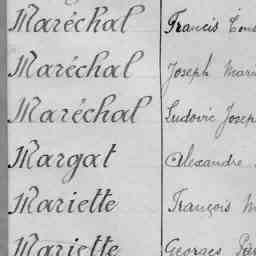 Maréchal Francis
Maréchal Joseph
Maréchal Ludovic Josep
Margat Alexandre
Mariette François
Mariette Georges